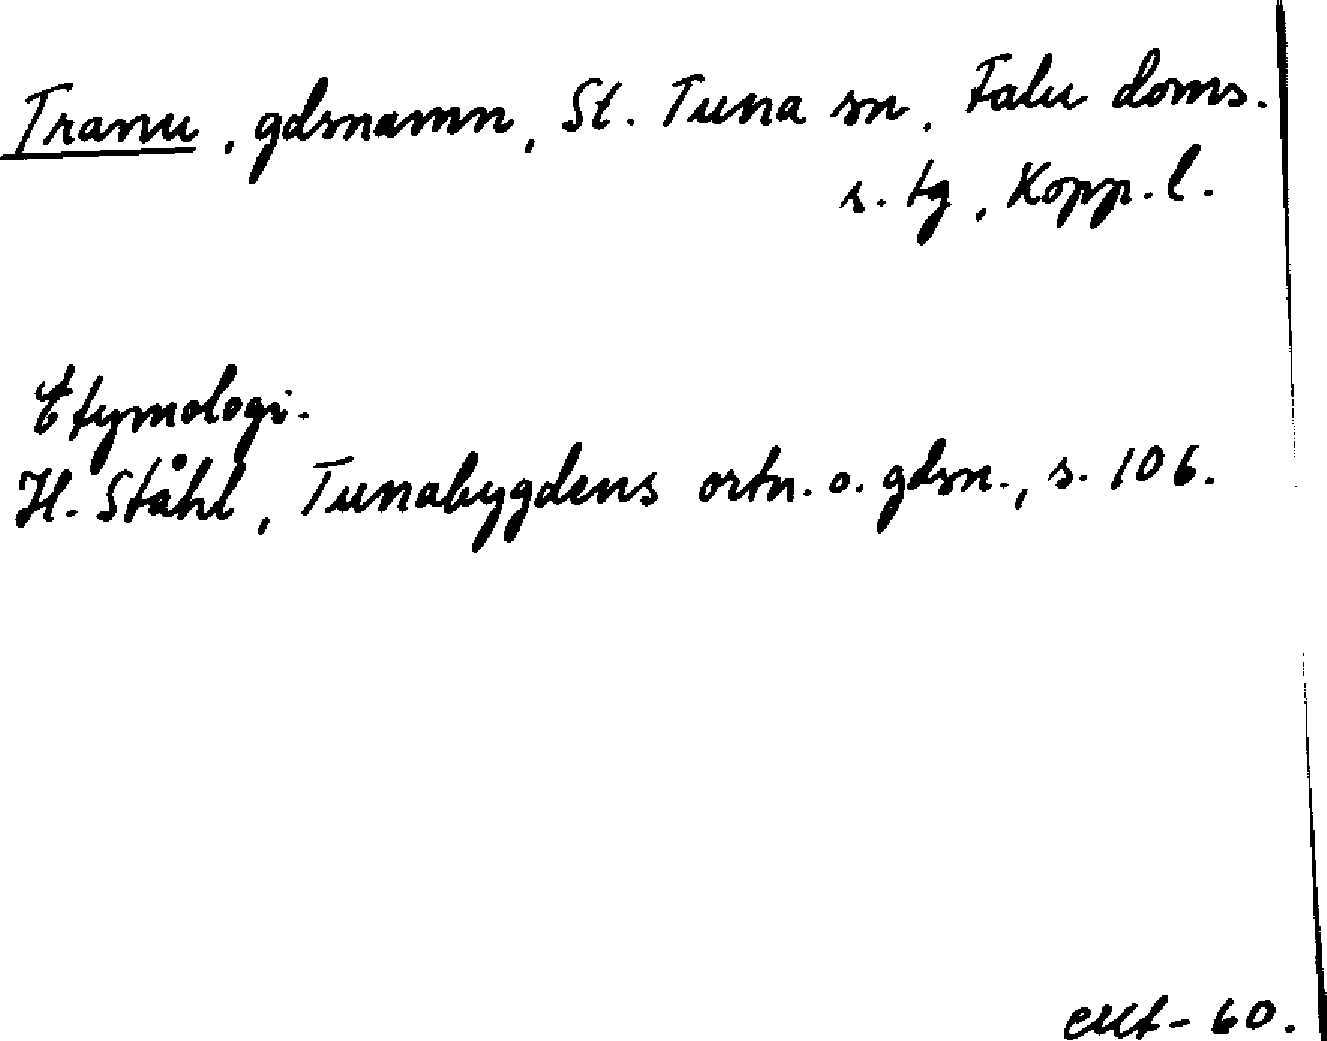 Tranu, gdsnamn, St. Tuna sn, Falu doms.
s. tg, Kopp. l.
Etymologi.
H. Ståhl, Tunabygdens ortn. o. gdsn., s. 106.
60.